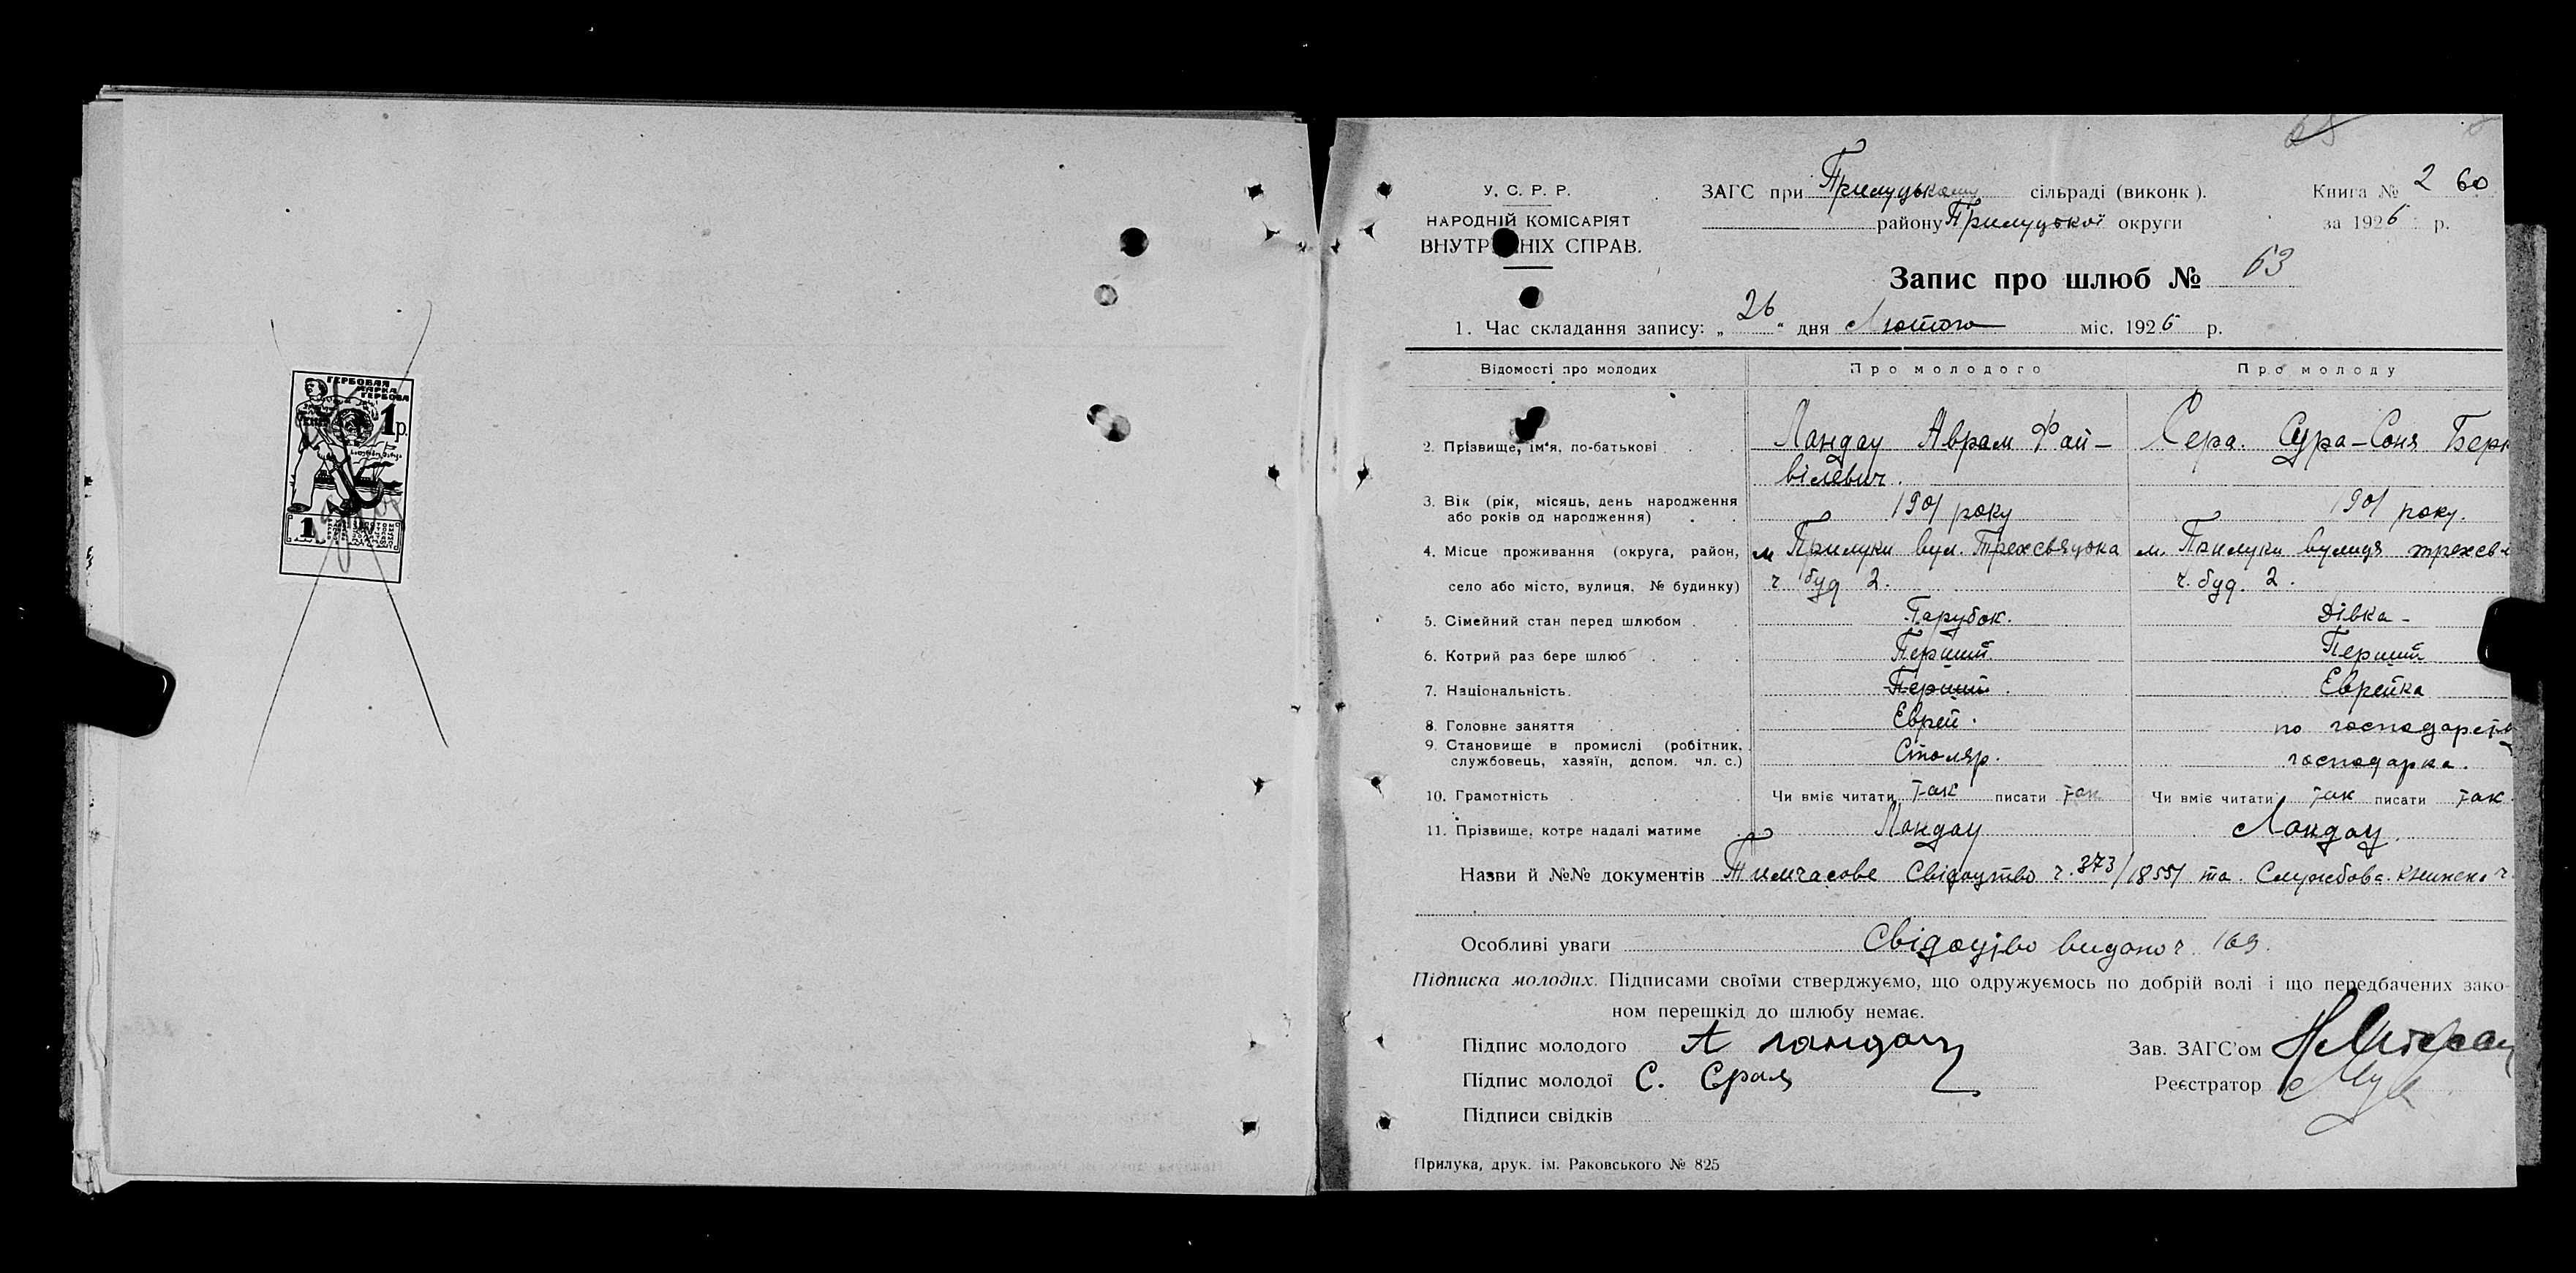 ГЕРБОВАЯ
МАРКА
ГЕРБОВА
1р.
1
У. С. Р. Р.
ЗАГС при Прилуцькому сільраді (виконк).
Книга № 2 60
НАРОДНІЙ КОМІСАРІЯТ
району Прилуцької округи
за 1926 р.
ВНУТР НІХ СПРАВ.
Запис про шлюб № 63
1. Час складання запису: „26“ дня Лютого міс. 1926 р.
Відомості про молодих Про молодого Про молоду
2. Прізвище, ім'я, по-батькові Ландау Аврам Фай- Сера. Сура-Соня Берк
вілевич.
3. Вік (рік, місяць, день народження
або років од народження) 1901 року 1901 року.
4. Місце проживання (округа, район, м Прилуки вул. Трехсвяцька м. Прилуки вулиця трехсв
село або місто, вулиця, № будинку) ч буд 2. ч. буд. 2.
5. Сімейний стан перед шлюбом Парубок. Дівка-
6. Котрий раз бере шлюб Перший Перший
7. Національність Перший. Еврейка
8. Головне заняття Еврей. по господарств
9. Становище в промислі (робітник,
службовець, хазяїн, допом. чл. с.) Столяр. господарка.
10. Грамотність Чи вміє читати так писати так Чи вміє читати так писати так.
11. Прізвище, котре надалі матиме Ландау Ландау.
Назви й №№ документів Тимчасове Свідоцтво ч. 373/18551 та. Службова. Книжка ч
Особливі уваги Свідоцтво видано ч. 169.
Підписка молодих. Підписами своїми стверджуємо, що одружуємось по добрій волі і що передбачених зако-
ном перешкід до шлюбу немає.
Підпис молодого А ландау Зав. ЗАГС'ом
Підпис молодої С. Реєстратор
Підписи свідків
Прилука, друк. ім. Раковського № 825